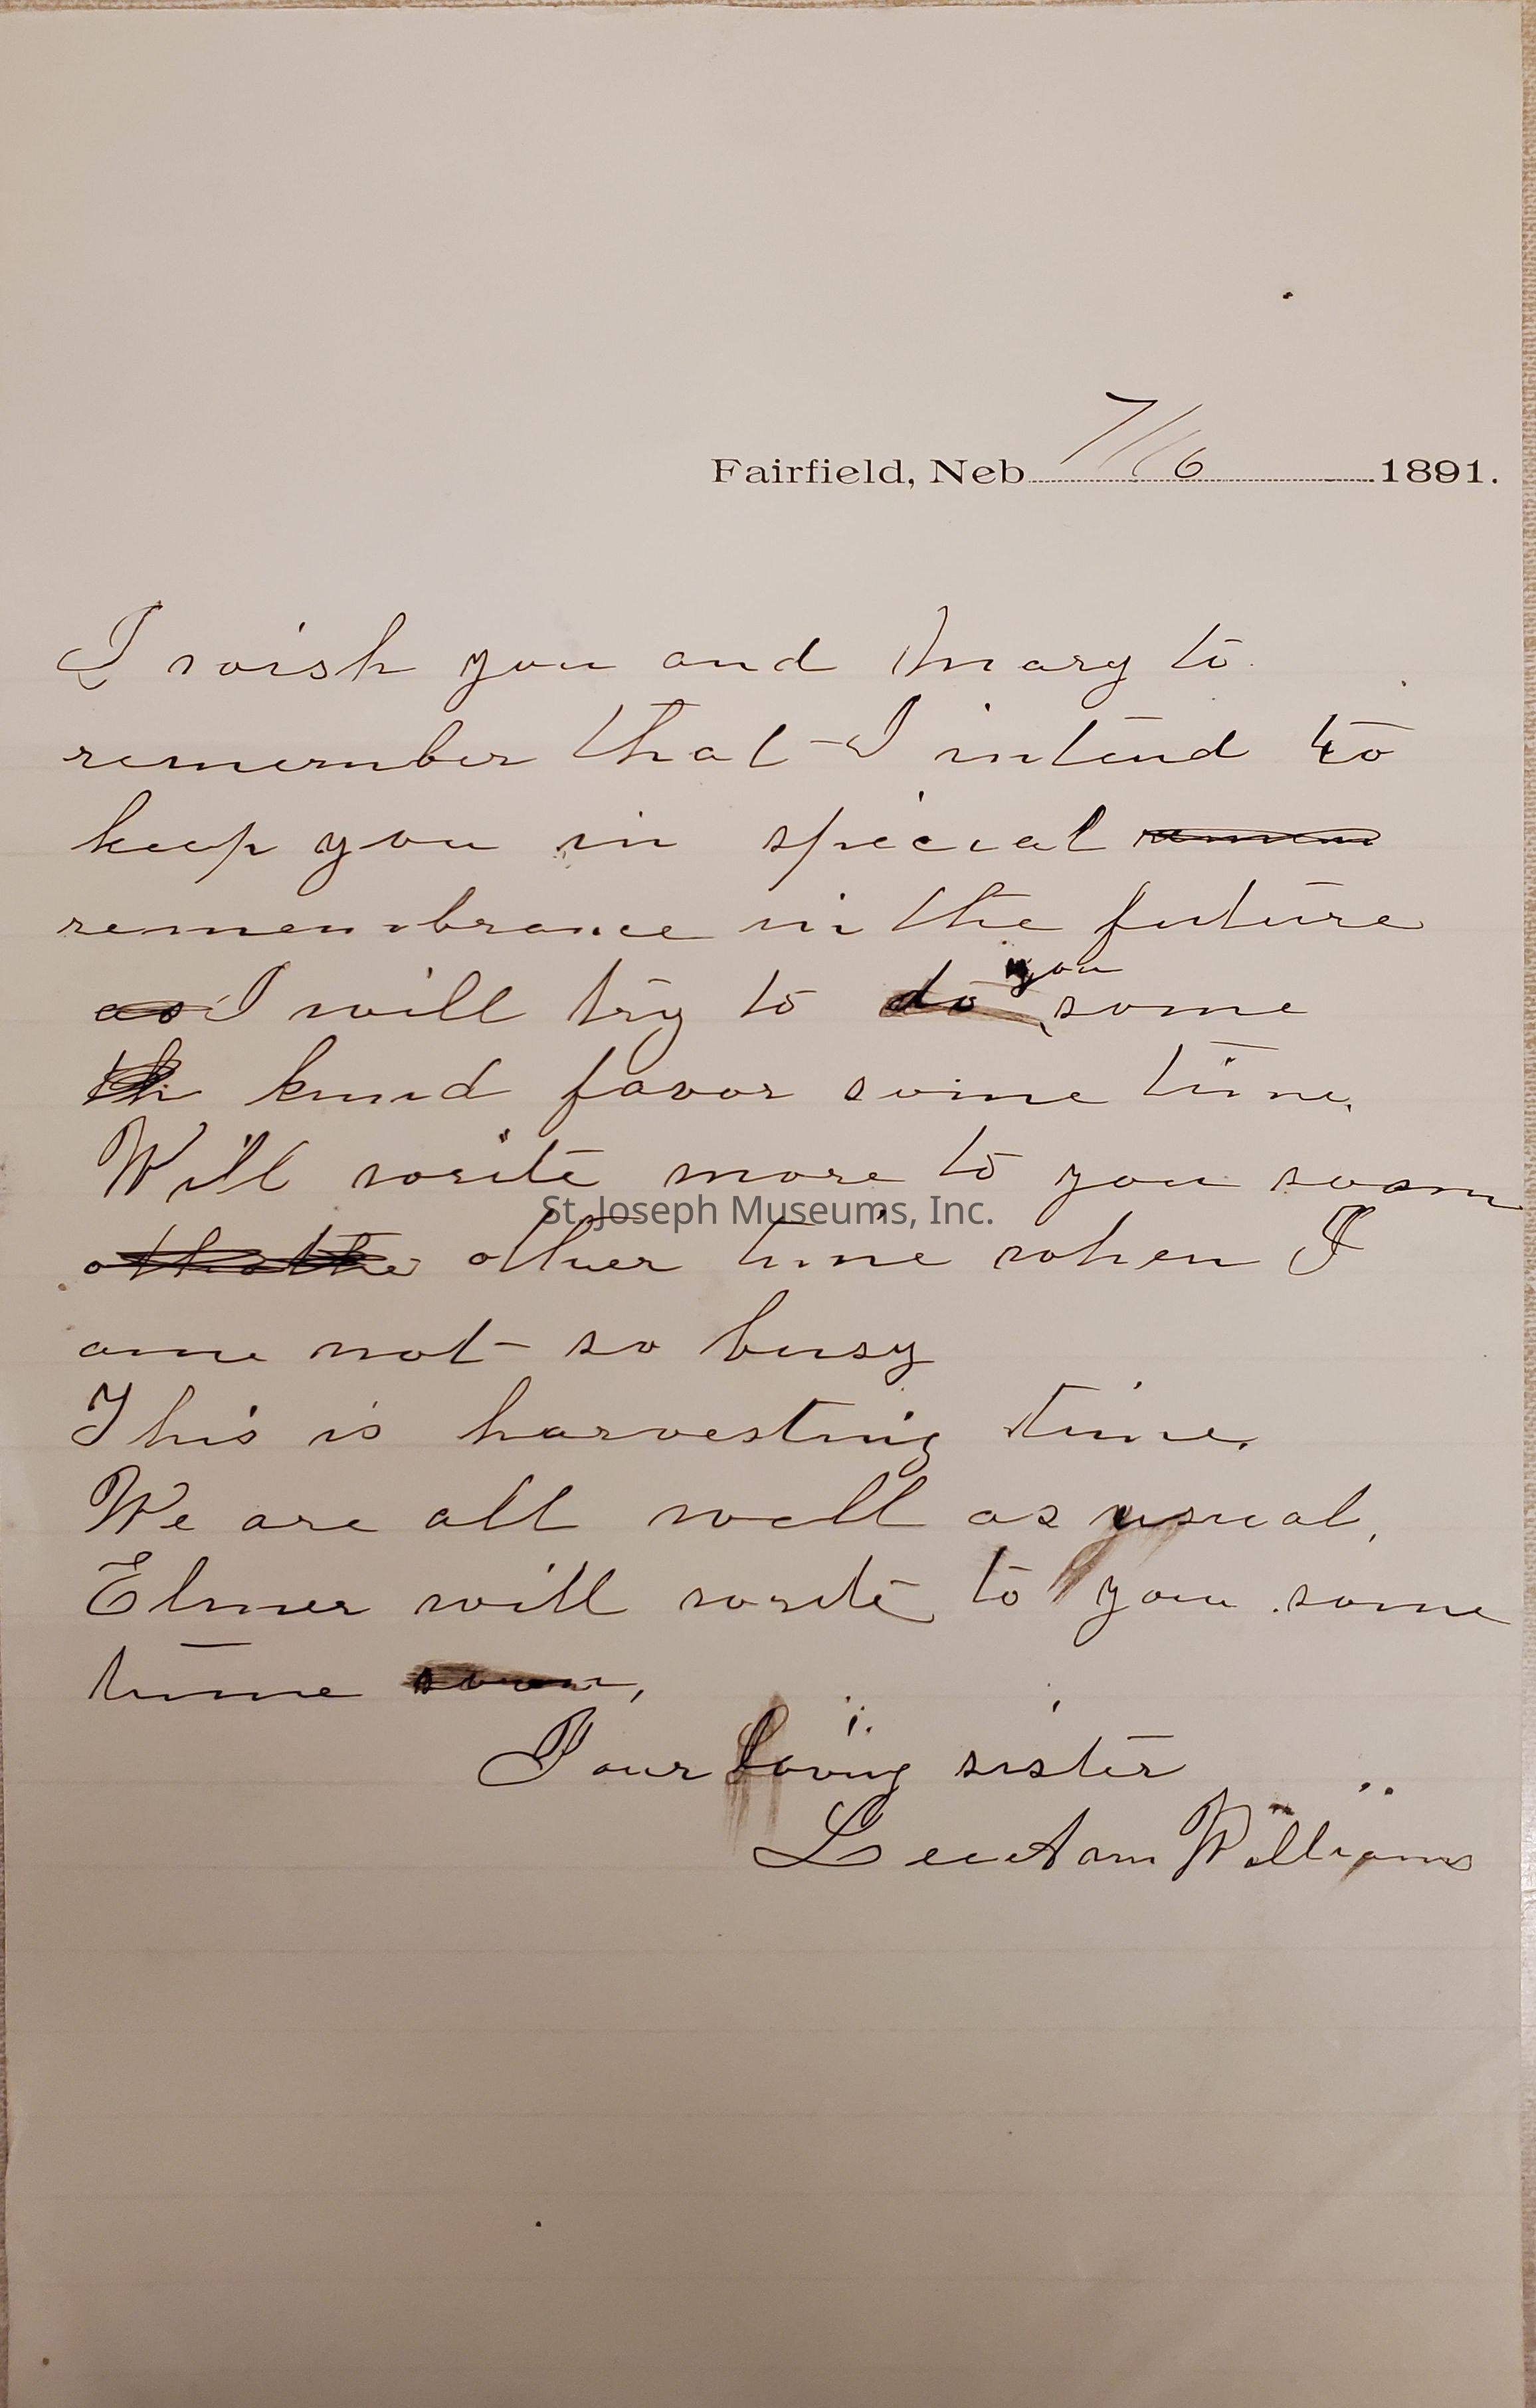 Fairfield, Neb 7/16 1891.
I wish you and Mary to
remember that I intend to
keep you in special
remembrance in the future
as I will try to do you some
kind favor some time.
Will write more to you soom
other time when I
ame not so busy
This is harvesting time.
We are all well as usual.
Elmer will write to you some
time soon,
Your loving sister
LeeAnn Williams
St. Joseph Museums, Inc.